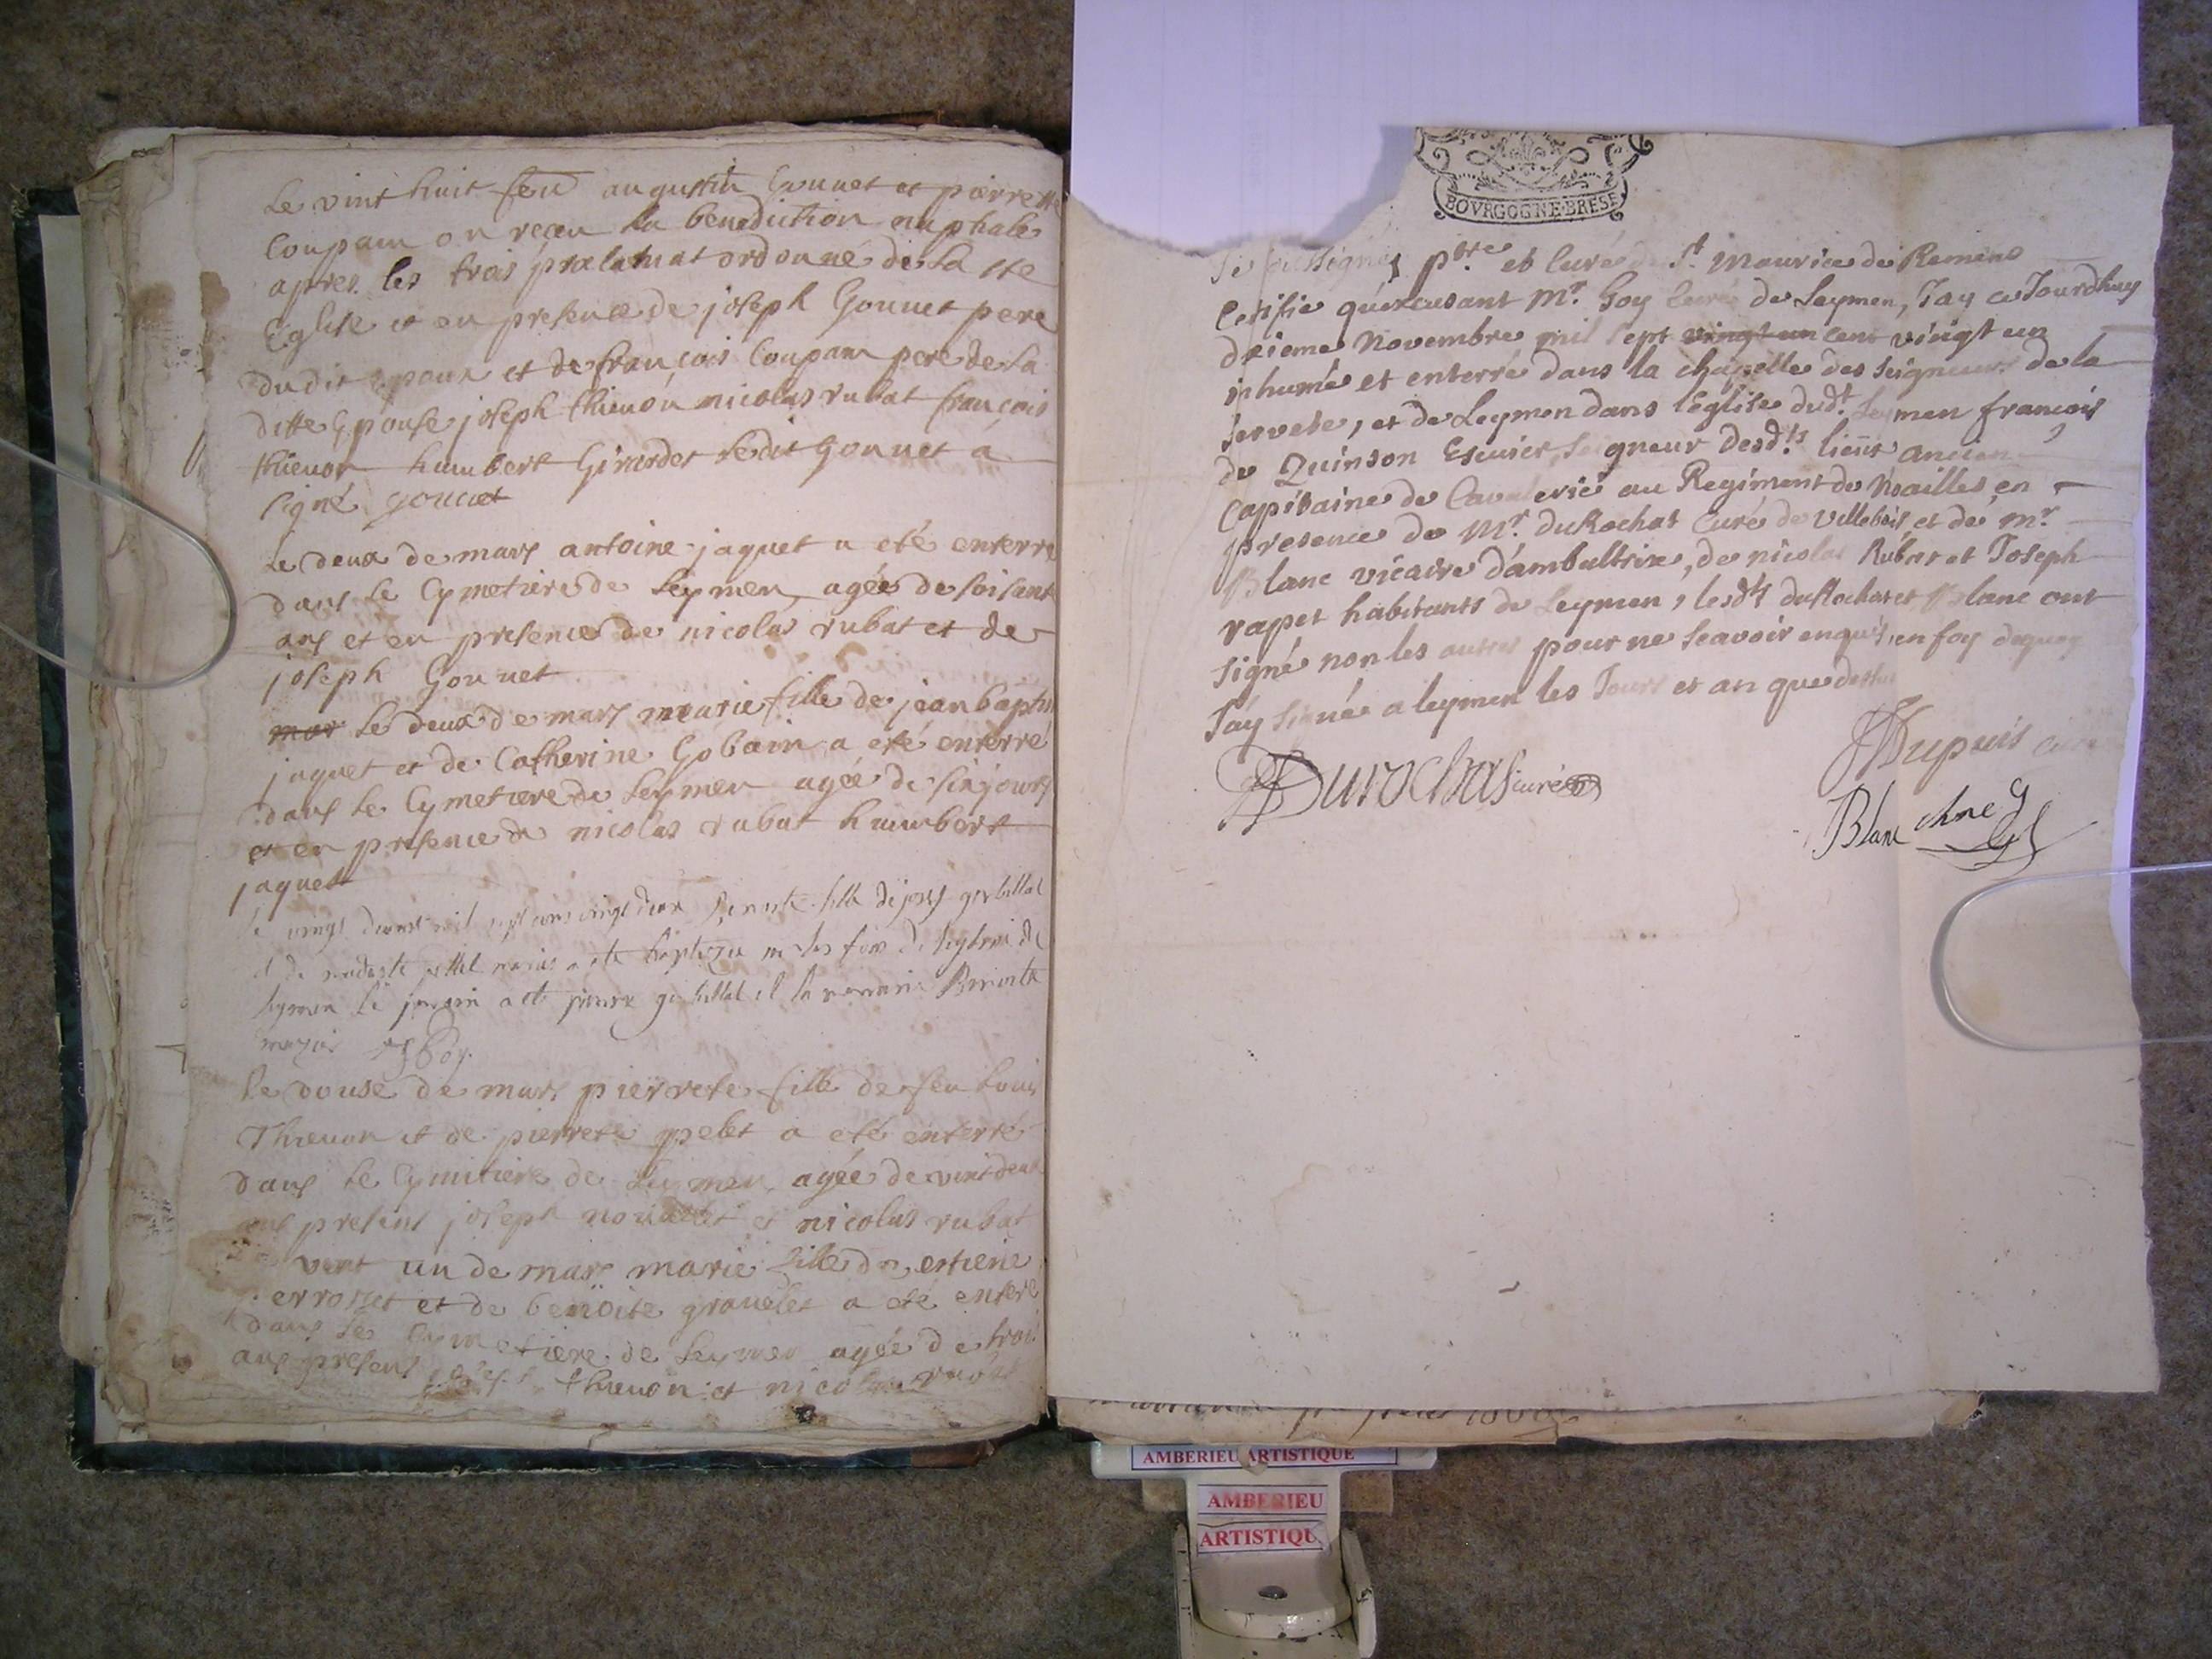 Le vint huit feu augustin Gonnet et pierrette
Coupam on recu la benediction nuphale
apres les trois proclamat ordonné de la ste
Eglise et en presence de joseph Gonnet pere
du dit epoux et de francois Coupam pere de la
ditte Epouse joseph thienon nicolas rubat francois
thienon humbert Girardet ledit gonnet a
signé gonnet
Le deux de mars antoine jaquet a eté enterre
dans le Cymetiere de Leymen agée de soisant
ans et en presence de nicolas rubat et de
joseph Gonnet
mar Le deux de mars marie fille de jean baptis
jaquet et de Catherine Gobain a eté enterré
dans le Cymetiere de Leymen agée de six jours
et en presence de nicolas rubat humbert
jaquet
le vingt mil sept cens vingt deux Benoite fille de
et de a ete baptizee
leymen le a ete et la Benoite
Goy
Le douse de mars pierrete fille de feu Louis
Thienon et de pierrete pelet a eté enterré
dans le Cymitiere de Leymen agée de vint deux
ans presens joseph et nicolas rubat
vint un de mars marie fille de etiene
et de benoite gravelet a eté enteré
dans le Cymetiere de Leymen agée de trois
ans presens thienon et nicolas rubat
BOVRGOGNE·BRESE
Je soussigné ptre et Curé de St Maurice de Remens
Certifie qu'excusant Mr. Goy Curé de Leymen, J'ay ce Jourdhuy
dixieme Novembre mil sept vingt un cent vingt un
inhumé et enterré dans la chapelle des seigneurs de la
servete, et de Leymen dans l'église dudt. Leymen francois
de Quinson Escuier, seigneur desdts lieux ancien
Capitaine de Cavalerie au Regiment de Noailles, en
presence de Mr. duRochat Curé de Villebois, et de mr.
Blanc vicaire d'ambultrix, de nicolas Rubat et Joseph
rapet habitants de Leymen, lesdts duRochat et Blanc ont
signé non les autres pour ne scavoir enquis, en foy dequoy
J'ay signé a leymen les Jours et an que dessus
Durochat curé
Dupuis curé
Blanc
AMBERIEU ARTISTIQUE
AMBERIEU
ARTISTIQU